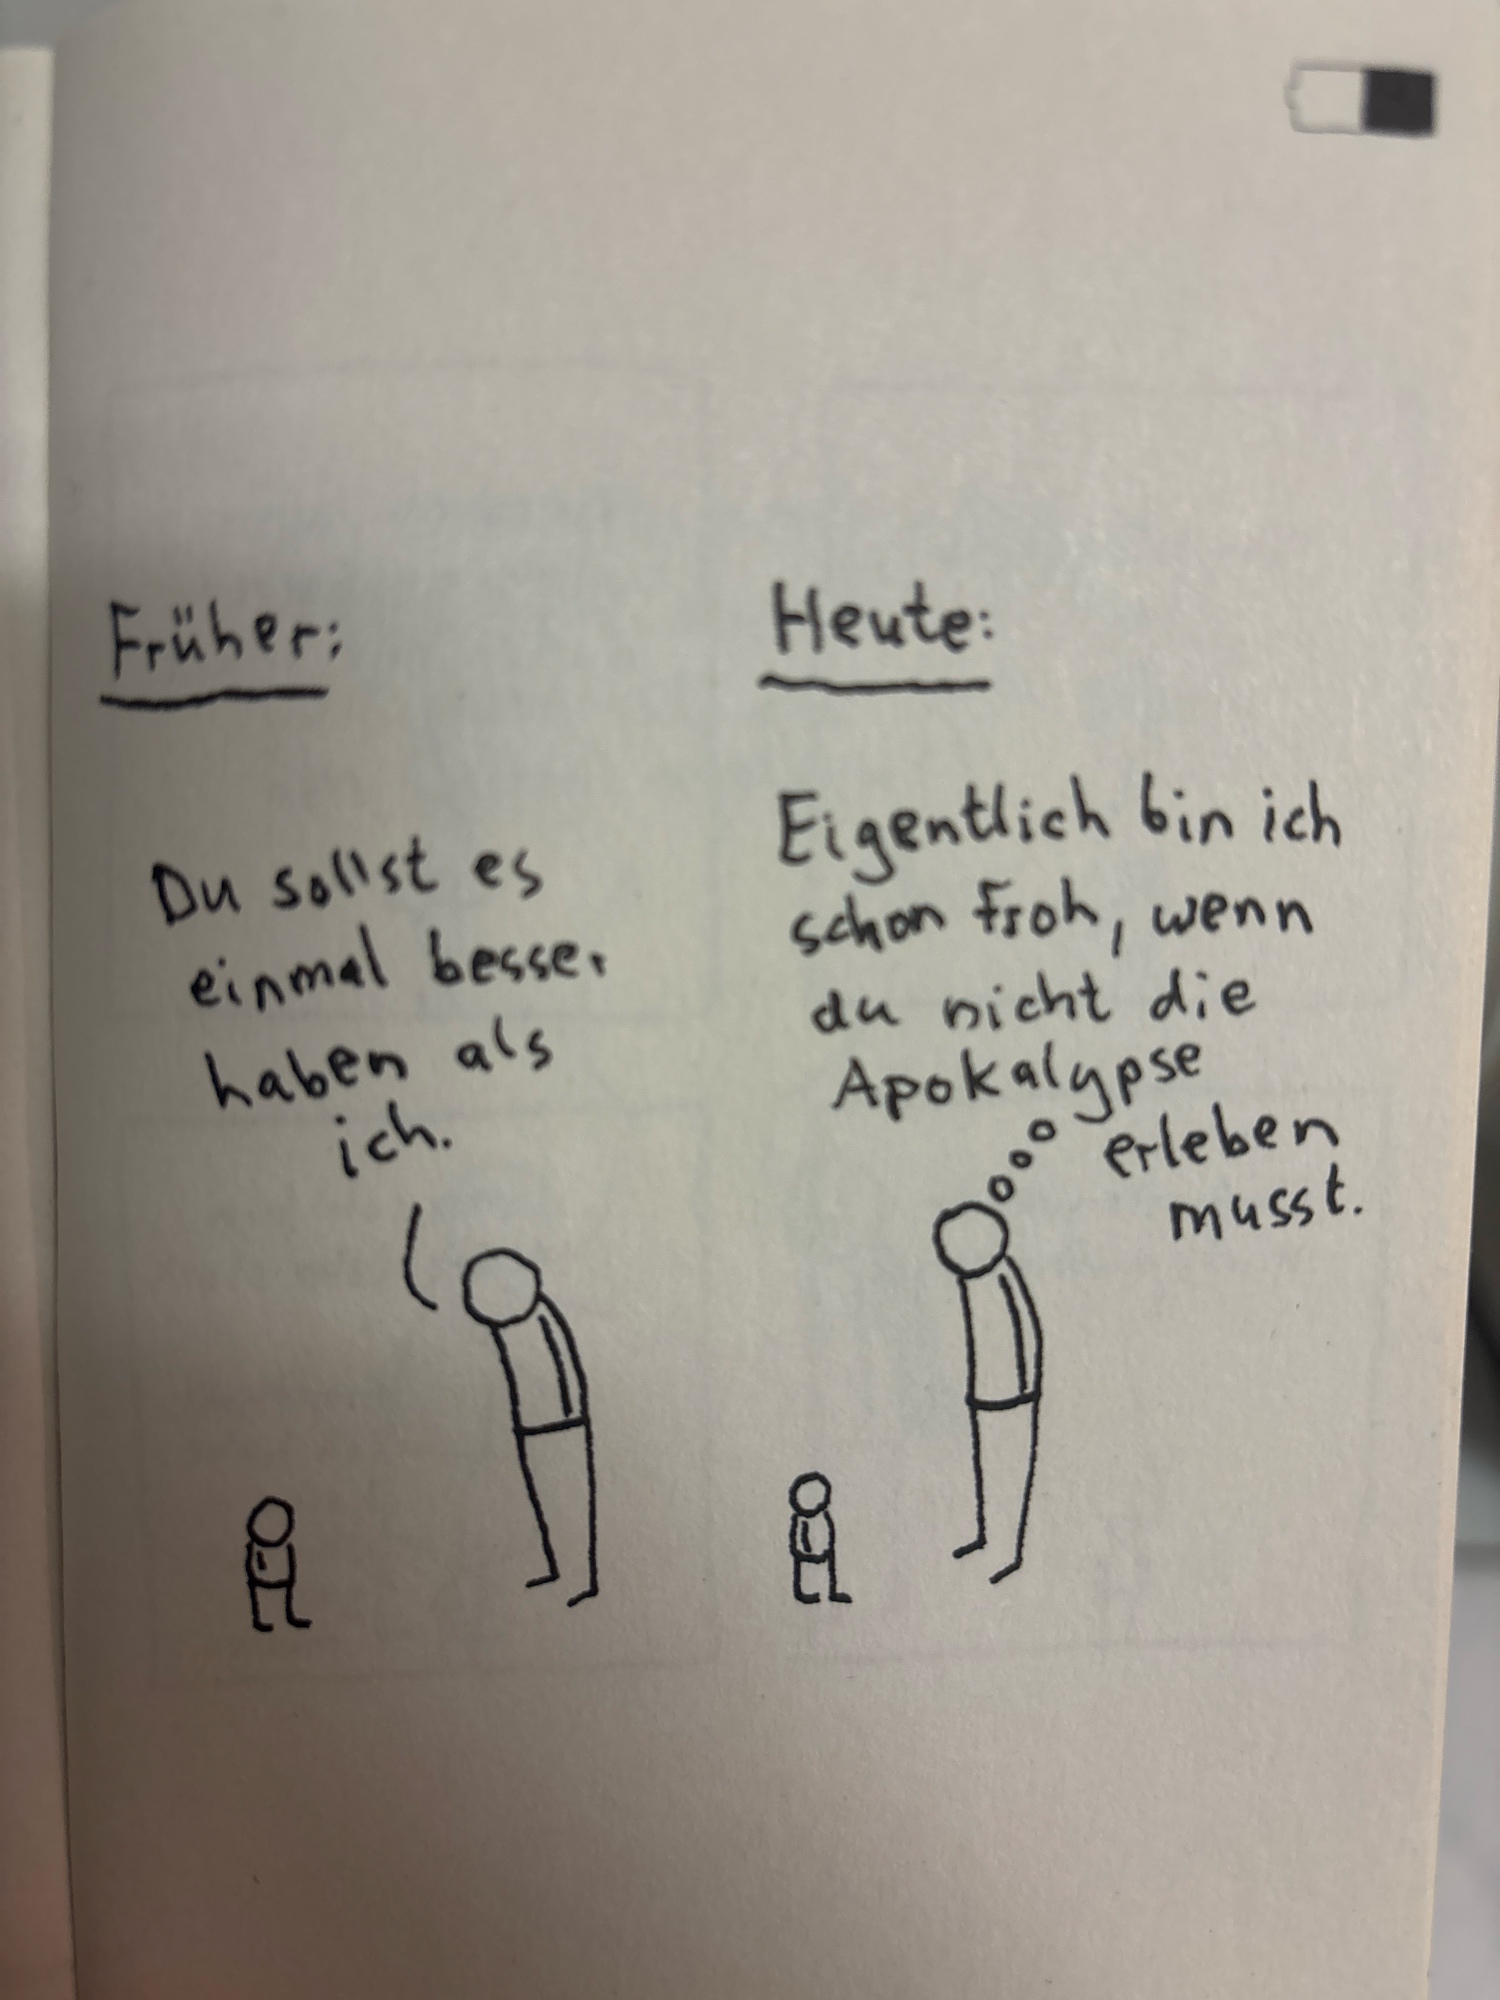 Früher:
Du sollst es
einmal besser
haben als
ich.
Heute:
Eigentlich bin ich
schon froh, wenn
du nicht die
Apokalypse
erleben
musst.